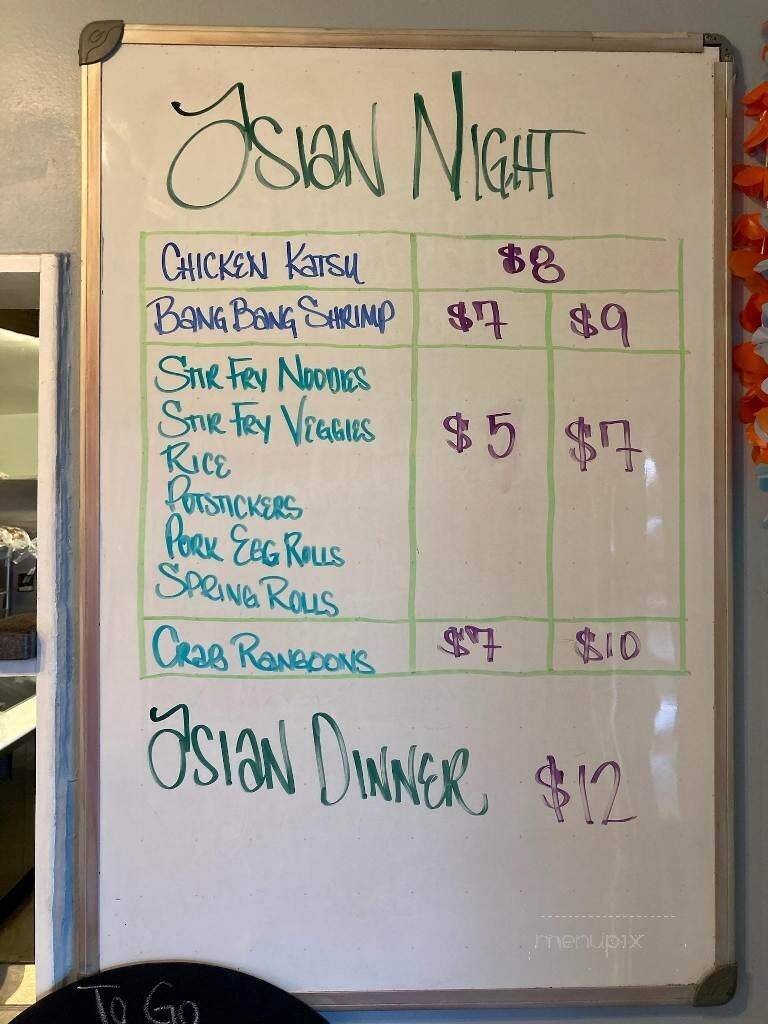 Asian Night
Chicken Katsu $8
Bang Bang Shrimp $7 $9
Stir Fry Noodles
Stir Fry Veggies $5 $7
Rice
Potstickers
Pork Egg Rolls
Spring Rolls
Crab Rangoons $7 $10
Asian Dinner $12
menupix
To Go